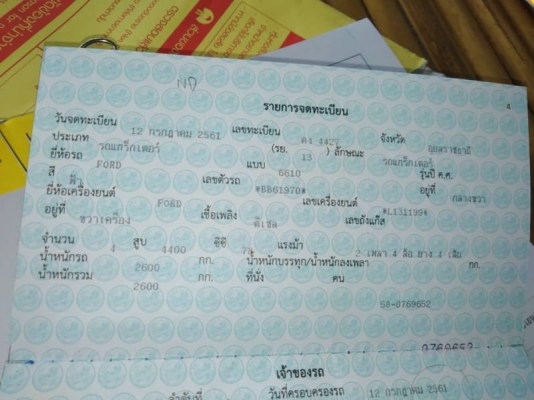 ND
รายการจดทะเบียน
4
วันจดทะเบียน 12 กรกฎาคม 2561 เลขทะเบียน ตง 4427 จังหวัด อุบลราชธานี
ประเภท รถแทร็กเตอร์ (รย. 13 ) ลักษณะ รถแทร็กเตอร์
ยี่ห้อรถ FORD แบบ 6610 รุ่นปี ค.ศ.
สี ฟ้า เลขตัวรถ *BB61970* อยู่ที่ กลางขวา
ยี่ห้อเครื่องยนต์ FORD เลขเครื่องยนต์ *L131199*
อยู่ที่ ขวาเครื่อง เชื้อเพลิง ดีเซล เลขถังแก๊ส
จำนวน 4 สูบ 4400 ซีซี แรงม้า 2 เพลา 4 ล้อ ยาง 4 เส้น
น้ำหนักรถ 2600 กก. น้ำหนักบรรทุก/น้ำหนักลงเพลา กก.
น้ำหนักรวม 2600 กก. ที่นั่ง คน
58-0769652
0769652
เจ้าของรถ
ลำดับที่ วันที่ครอบครองรถ 12 กรกฎาคม 2561